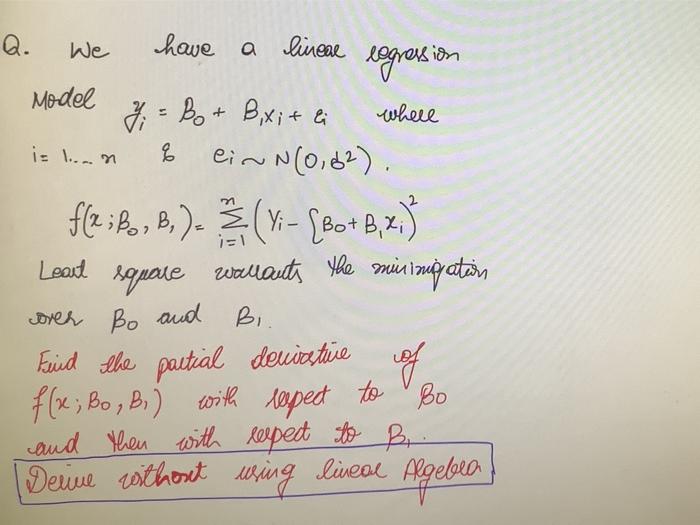 Q. We have a linear regression
Model yi = B0 + B1xi + ei where
i= 1.... n & ei ~ N(0, σ²).
f(x ; B0, B1) = Σ i=1 n (Yi - [B0 + B1xi)²
Least square warrants the minimization
over B0 and B1.
Find the partial derivative of
f(x ; B0, B1) with respect to B0
and then with respect to B1.
Derive without using linear Algebra